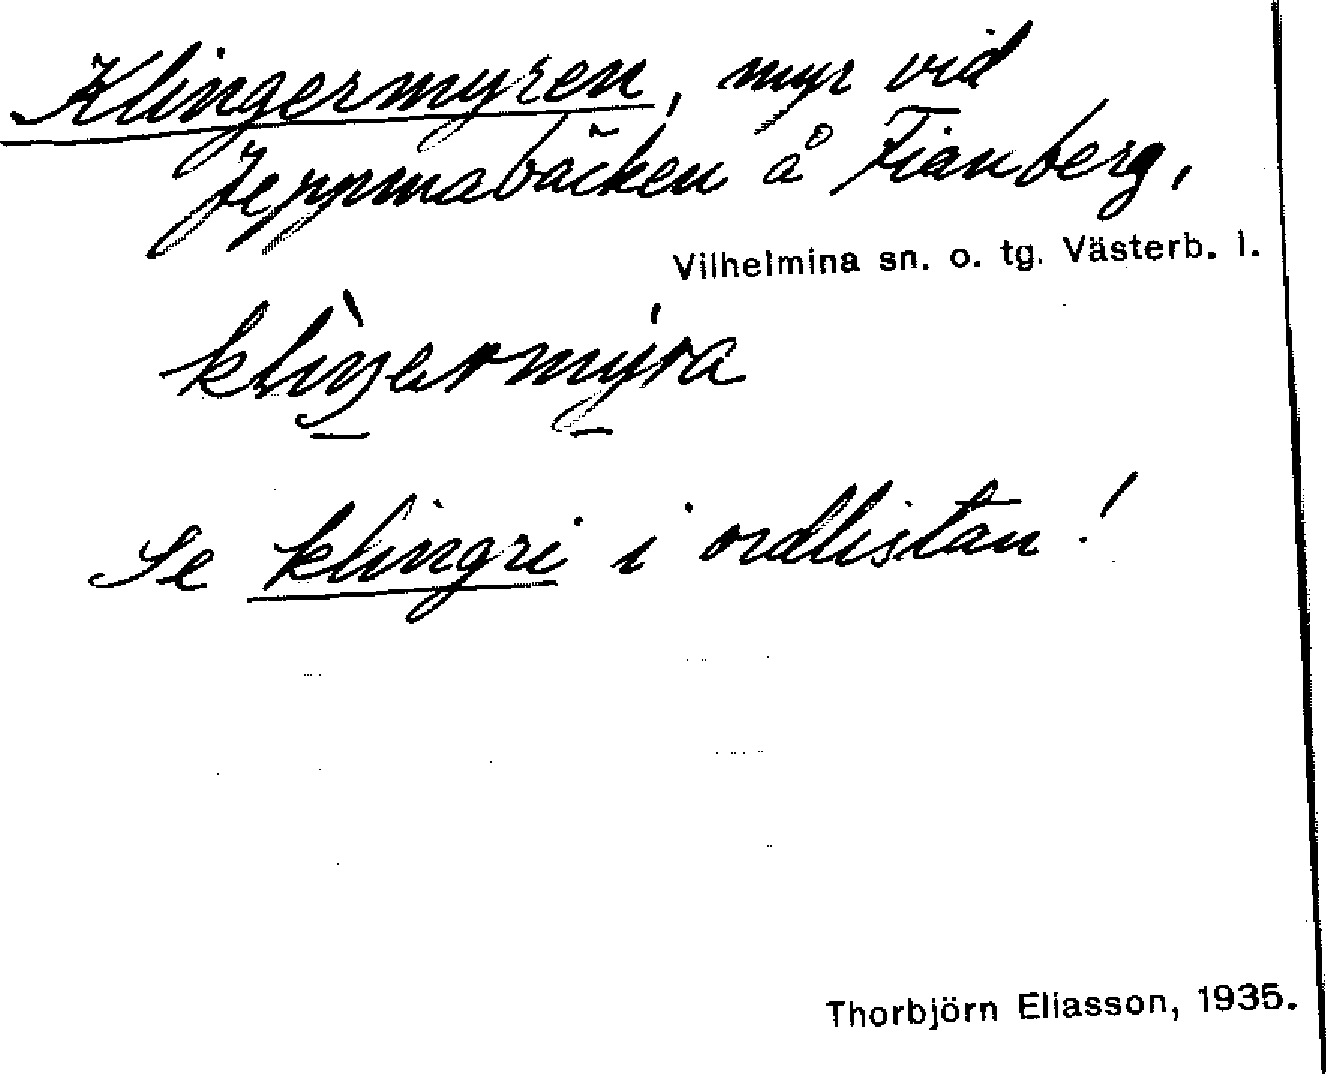 Klingermyren, myr vid
Jeppmabäcken å Fianberg,
Vilhelmina sn. o. tg. Västerb. l.
klìŋermýra
Se klingri i ordlistan!
Thorbjörn Eliasson, 1935.